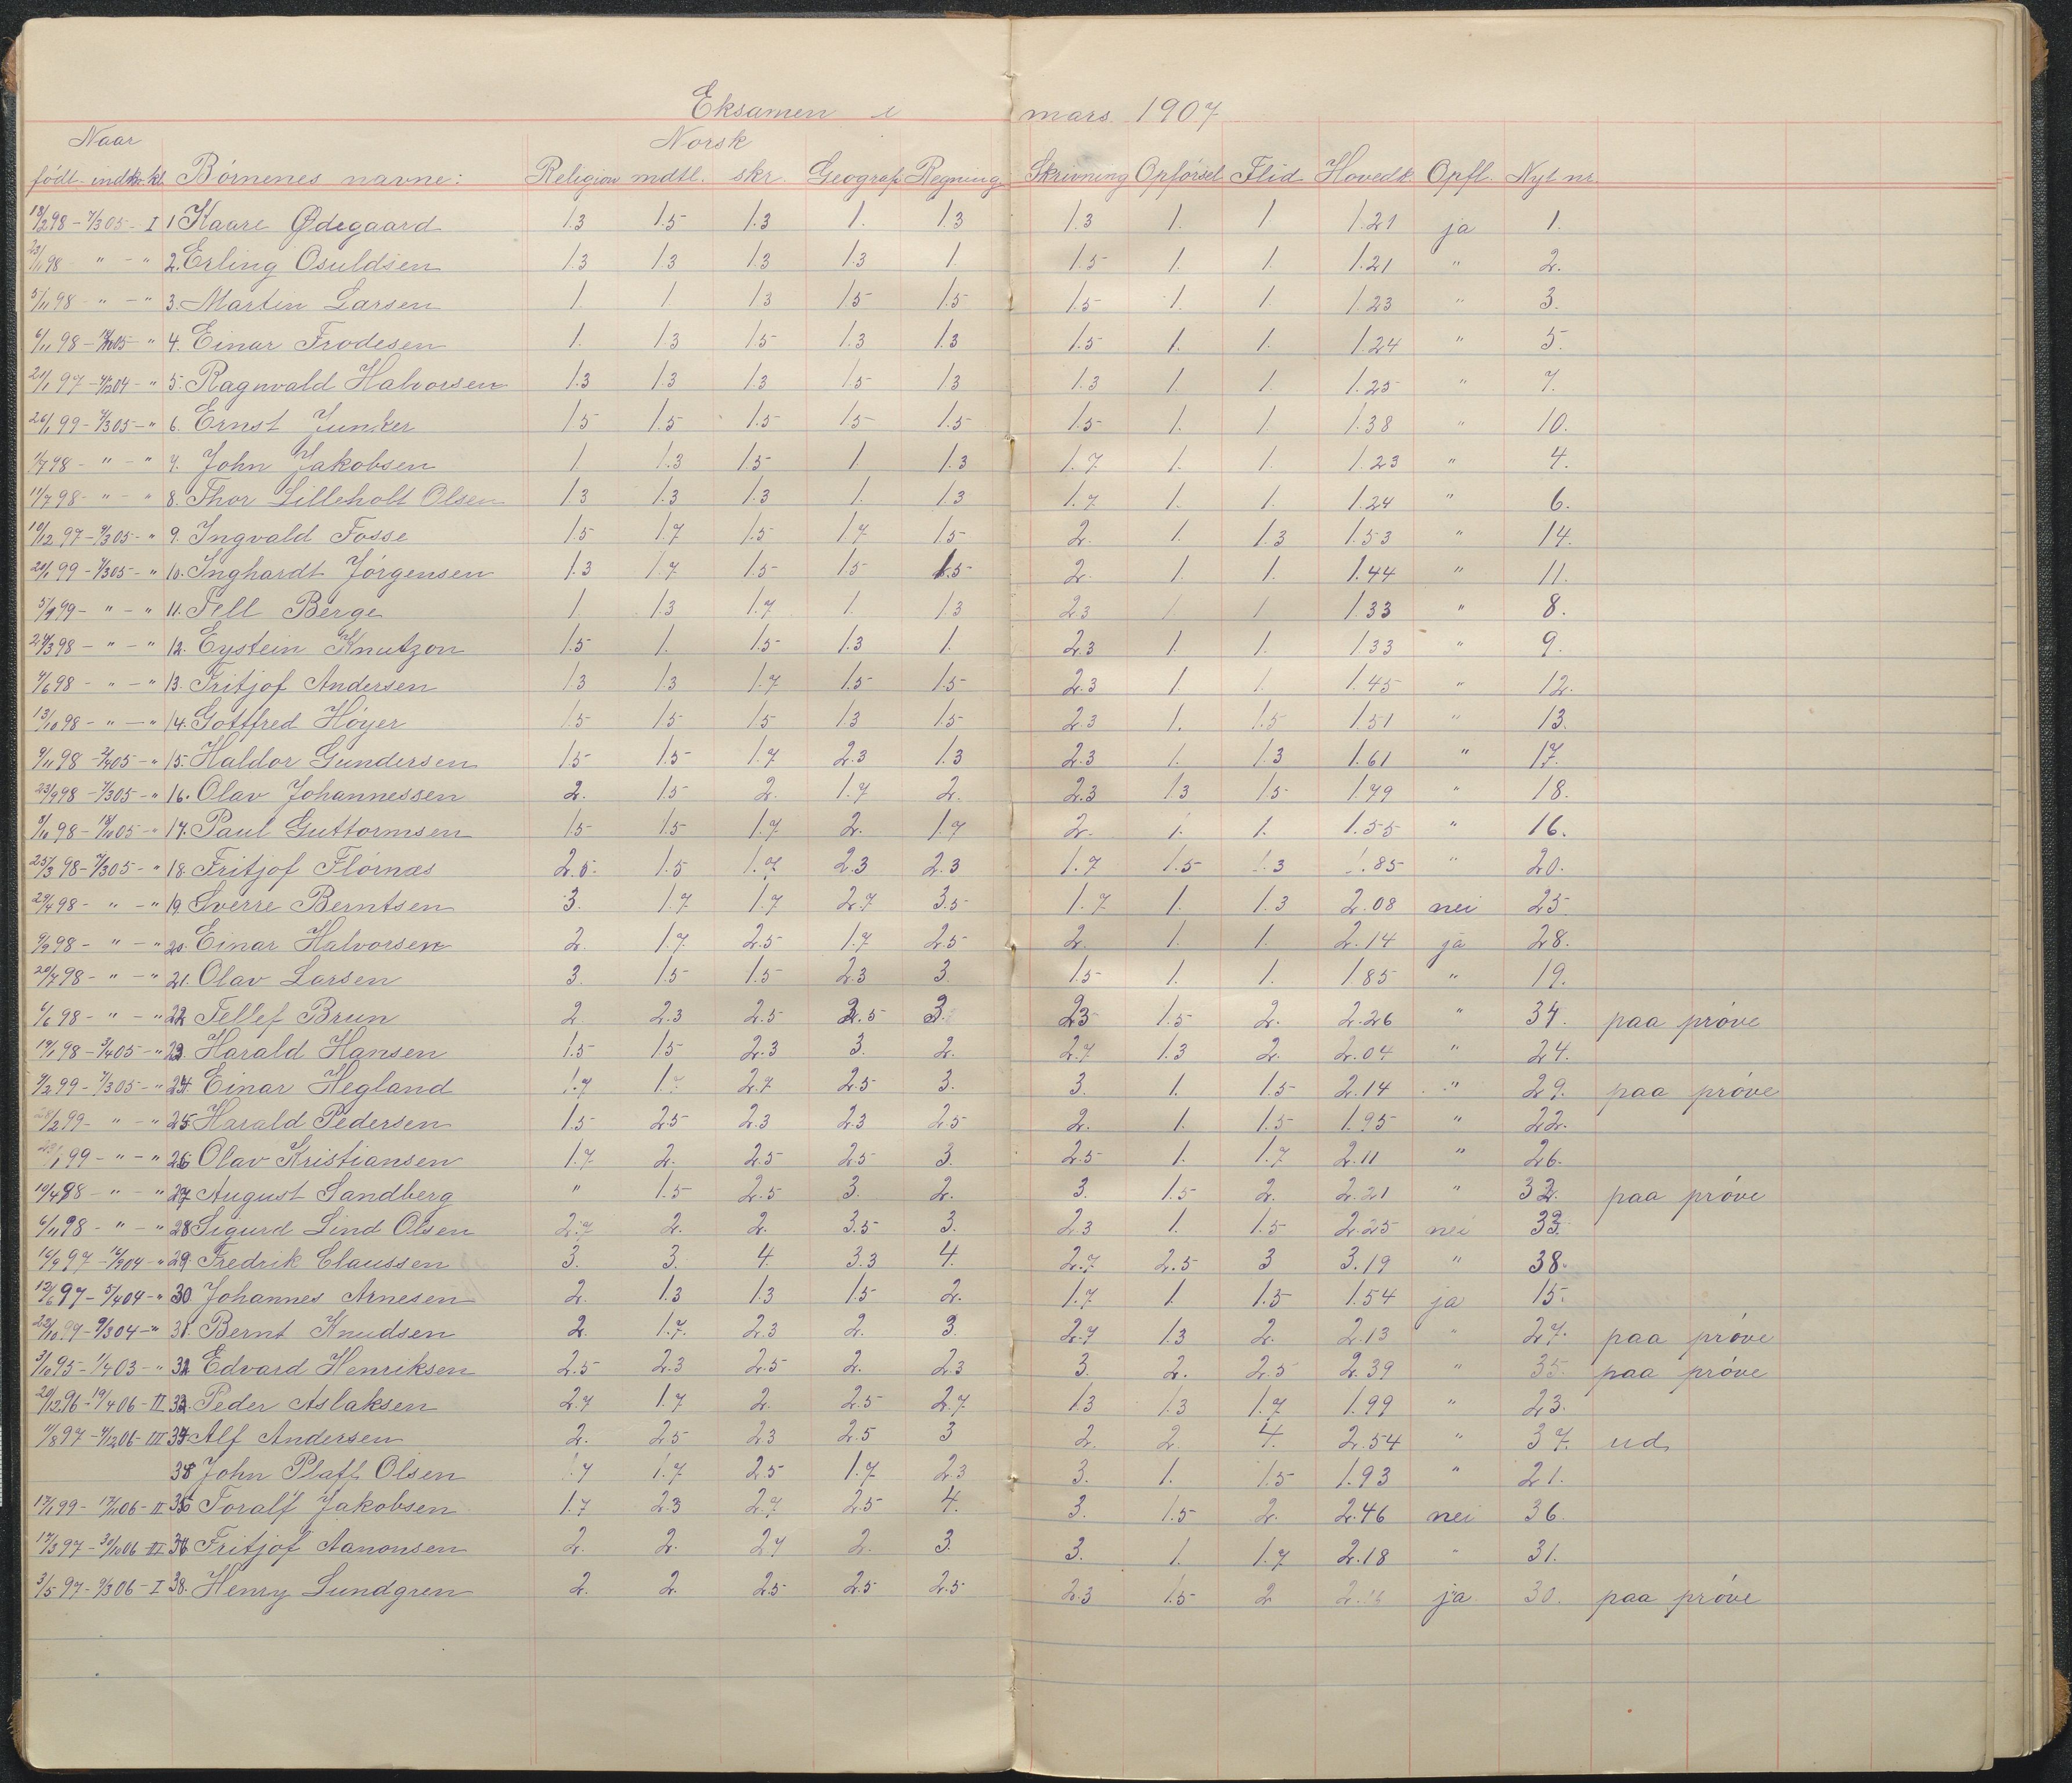 Eksamen i mars 1907
Naar Norsk
födt- indk. kl. Börnenes navne: Religion mdtl. skr. Geografi Regning Skrivning Opförsel Flid Hovedk. Opfl. Nyt nr.
18/2 98 - 7/3 05 - I 1 Kaare Ødegaard 1.3 1.5 1.3 1. 1.3 1.3 1. 1 1.21 ja 1.
23/11 98 " - " 2. Erling Osuldsen 1.3 1.3 1.3 1.3 1. 1.5 1. 1. 1.21 " 2.
5/11 98 - " - " 3. Martin Larsen 1. 1. 1.3 1.5 1.5 1.5 1. 1. 1.23 " 3.
6/11 98 - " 4. Einar Frodesen 1. 1.3 1.5 1.3 1.3 1.5 1. 1. 1.24 " 5.
21/1 97 - " 5. Ragnvald Halvorsen 1.3 1.3 1.3 1.5 1.3 1.3 1. 1. 1.25 " 7.
26/1 99 - 7/3 05 - " 6. Ernst Junker 1.5 1.5 1.5 1.5 1.5 1.5 1. 1. 1.38 " 10.
1/7 98 - " - " 7. John Jakobsen 1 1.3 1.5 1 1.3 1.7 1. 1. 1.23 " 4.
11/7 98 - " - " 8. Thor Lilleholt Olsen 1.3 1.3 1.3 1. 1.3 1.7 1. 1. 1.24 " 6.
10/12 97 - 7/3 05 - " 9. Ingvald Fosse 1.5 1.7 1.5 1.7 1.5 2. 1. 1.3 1.53 " 14.
20/1 99 - 7/3 05 - " 10. Inghardt Jörgensen 1.3 1.7 1.5 1.5 1.5 2. 1. 1. 1.44 " 11.
99 - " - " 11. Tell Berge 1 1.3 1.7 1. 1.3 2.3 1 1 1.33 " 8.
98 - " - " 12. Eystein Knutzon 1.5 1. 1.5 1.3 1. 2.3 1. 1. 1.33 " 9.
98 - " - " 13. Fritjof Andersen 1.3 1.3 1.7 1.5 1.5 2.3 1 1. 1.45 " 12.
13/10 98 - " - " 14. Gottfred Höyer 1.5 1.5 1.5 1.3 1.5 2.3 1. 1.5 1.51 " 13.
98 - 05 - " 15. Haldor Gundersen 1.5 1.5 1.7 2.3 1.3 2.3 1. 1.3 1.61 " 17.
23/9 98 - 7/3 05 - " 16. Olav Johannessen 2. 1.5 2. 1.7 2. 2.3 1.3 1.5 1.79 " 18.
98 - 05 - " 17. Paul Guttormsen 1.5 1.5 1.7 2. 1.7 2. 1. 1. 1.55 " 16.
25/3 98 - 7/3 05 - " 18. Fritjof Flörnæs 2.5 1.5 1.7 2.3 2.3 1.7 1.5 1.3 1.85 " 20.
29/4 98 - " - " 19. Sverre Berntsen 3. 1.7 1.7 2.7 3.5 1.7 1. 1.3 2.08 nei 25.
9/9 98 - " - " 20. Einar Halvorsen 2. 1.7 2.5 1.7 2.5 2. 1. 1. 2.14 ja 28.
20/7 98 - " - " 21. Olav Larsen 3. 1.5 1.5 2.3 3. 1.5 1. 1. 1.85 " 19.
6/6 98 - " - " 22 Tellef Brun 2. 2.3 2.5 2.5 3. 2.3 1.5 2. 2.26 " 34. paa pröve
19/1 98 - 3/4 05 - " 23. Harald Hansen 1.5 1.5 2.3 3. 2. 2.7 1.3 2. 2.04 " 24.
9/2 99 - 7/3 05 - " 24. Einar Hegland 1.7 1.7 2.7 2.5 3. 3. 1. 1.5 2.14 " 29. paa pröve
28/2 99 - " - " 25 Harald Pedersen 1.5 2.5 2.3 2.3 2.5 2. 1. 1.5 1.95 " 22.
99 - " - " 26 Olav Kristiansen 1.7 2. 2.5 2.5 3. 2.5 1. 1.7 2.11 " 26.
10/4 98 - " - " 27 August Sandberg " 1.5 2.5 3. 2. 3. 1.5 2. 2.21 " 32. paa pröve
6/11 98 - " - " 28 Sigurd Lind Olsen 2.7 2. 2. 3.5 3. 2.3 1. 1.5 2.25 nei 33.
16/9 97 - 04 - " 29. Fredrik Claussen 3. 3. 4. 3.3 4. 2.7 2.5 3 3.19 " 38.
12/6 97 - 5/4 04 - " 30. Johannes Arnesen 2. 1.3 1.3 1.5 2. 1.7 1. 1.5 1.54 ja 15.
22/10 97 - 9/3 04 - " 31. Bernt Knudsen 2. 1.7. 2.3 2. 3. 2.7 1.3 2. 2.13 " 27. paa pröve
3/10 95 - 1/4 03 - " 32 Edvard Henriksen 2.5 2.3 2.5 2. 2.3 3. 2. 2.5 2.39 " 35. paa pröve
20/12 96 - 19/4 06 - II 33. Peder Aslaksen 2.7 1.7 2. 2.5 2.7 1.3 1.3 1.7 1.99 " 23.
11/8 97 - 4/12 06 - III 34 Alf Andersen 2. 2.5 2.3 2.5 3 2. 2. 4. 2.54 " 37. ud
John Platt Olsen 1.7 1.7 2.5 1.7 2.3 3. 1. 1.5 1.93 " 21.
99 - 06 - II Toralf Jakobsen 1.7 2.3 2.7 2.5 4. 3. 1.5 2. 2.46 nei 36.
97 - 30/10 06 - III Fritjof Aanonsen 2. 2. 2.7 2. 3. 3. 1. 1.7 2.18 " 31.
3/5 97 - 9/3 06 - I 38. Henry Lundgren 2. 2. 2.5 2.5 2.5 2.3 1.5 2 2.16 ja 30. paa pröve